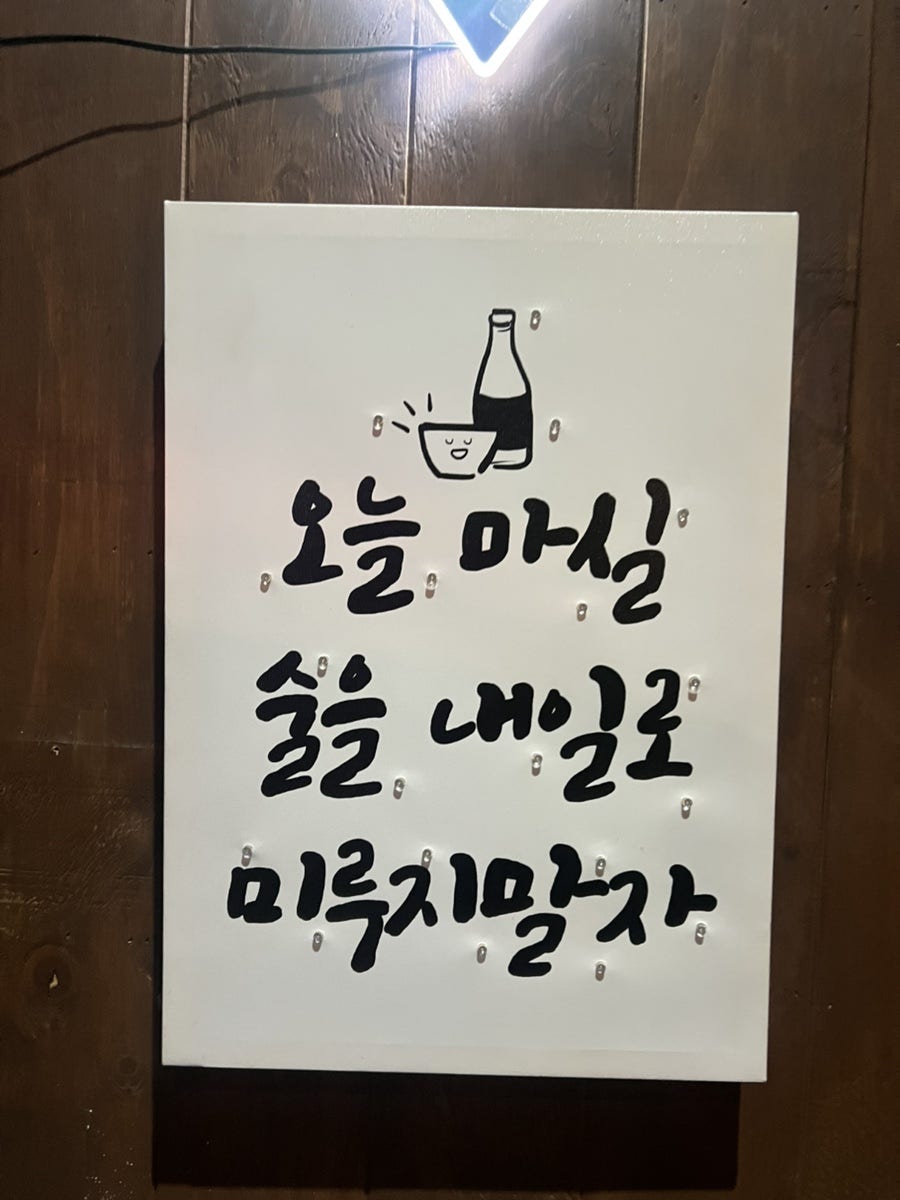 오늘 마실
술을 내일로
미루지말자